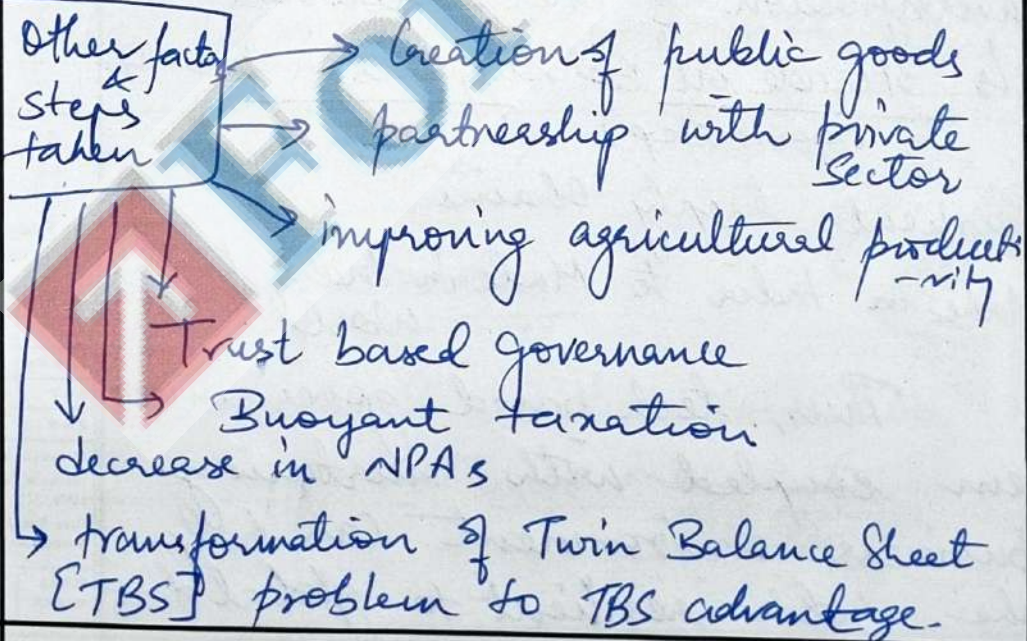 Other facto
&
steps
taken
Creation of public goods
partnership with private
Sector
improving agricultural producti
-vity
Trust based governance
Buoyant taxation
decrease in NPAs
transformation of Twin Balance Sheet
[TBS] problem to TBS advantage.
FOR